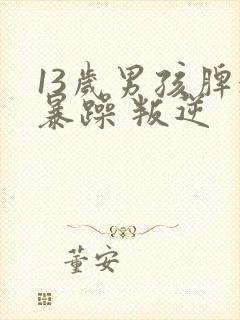 13歲男孩脾
暴躁 叛逆
董安